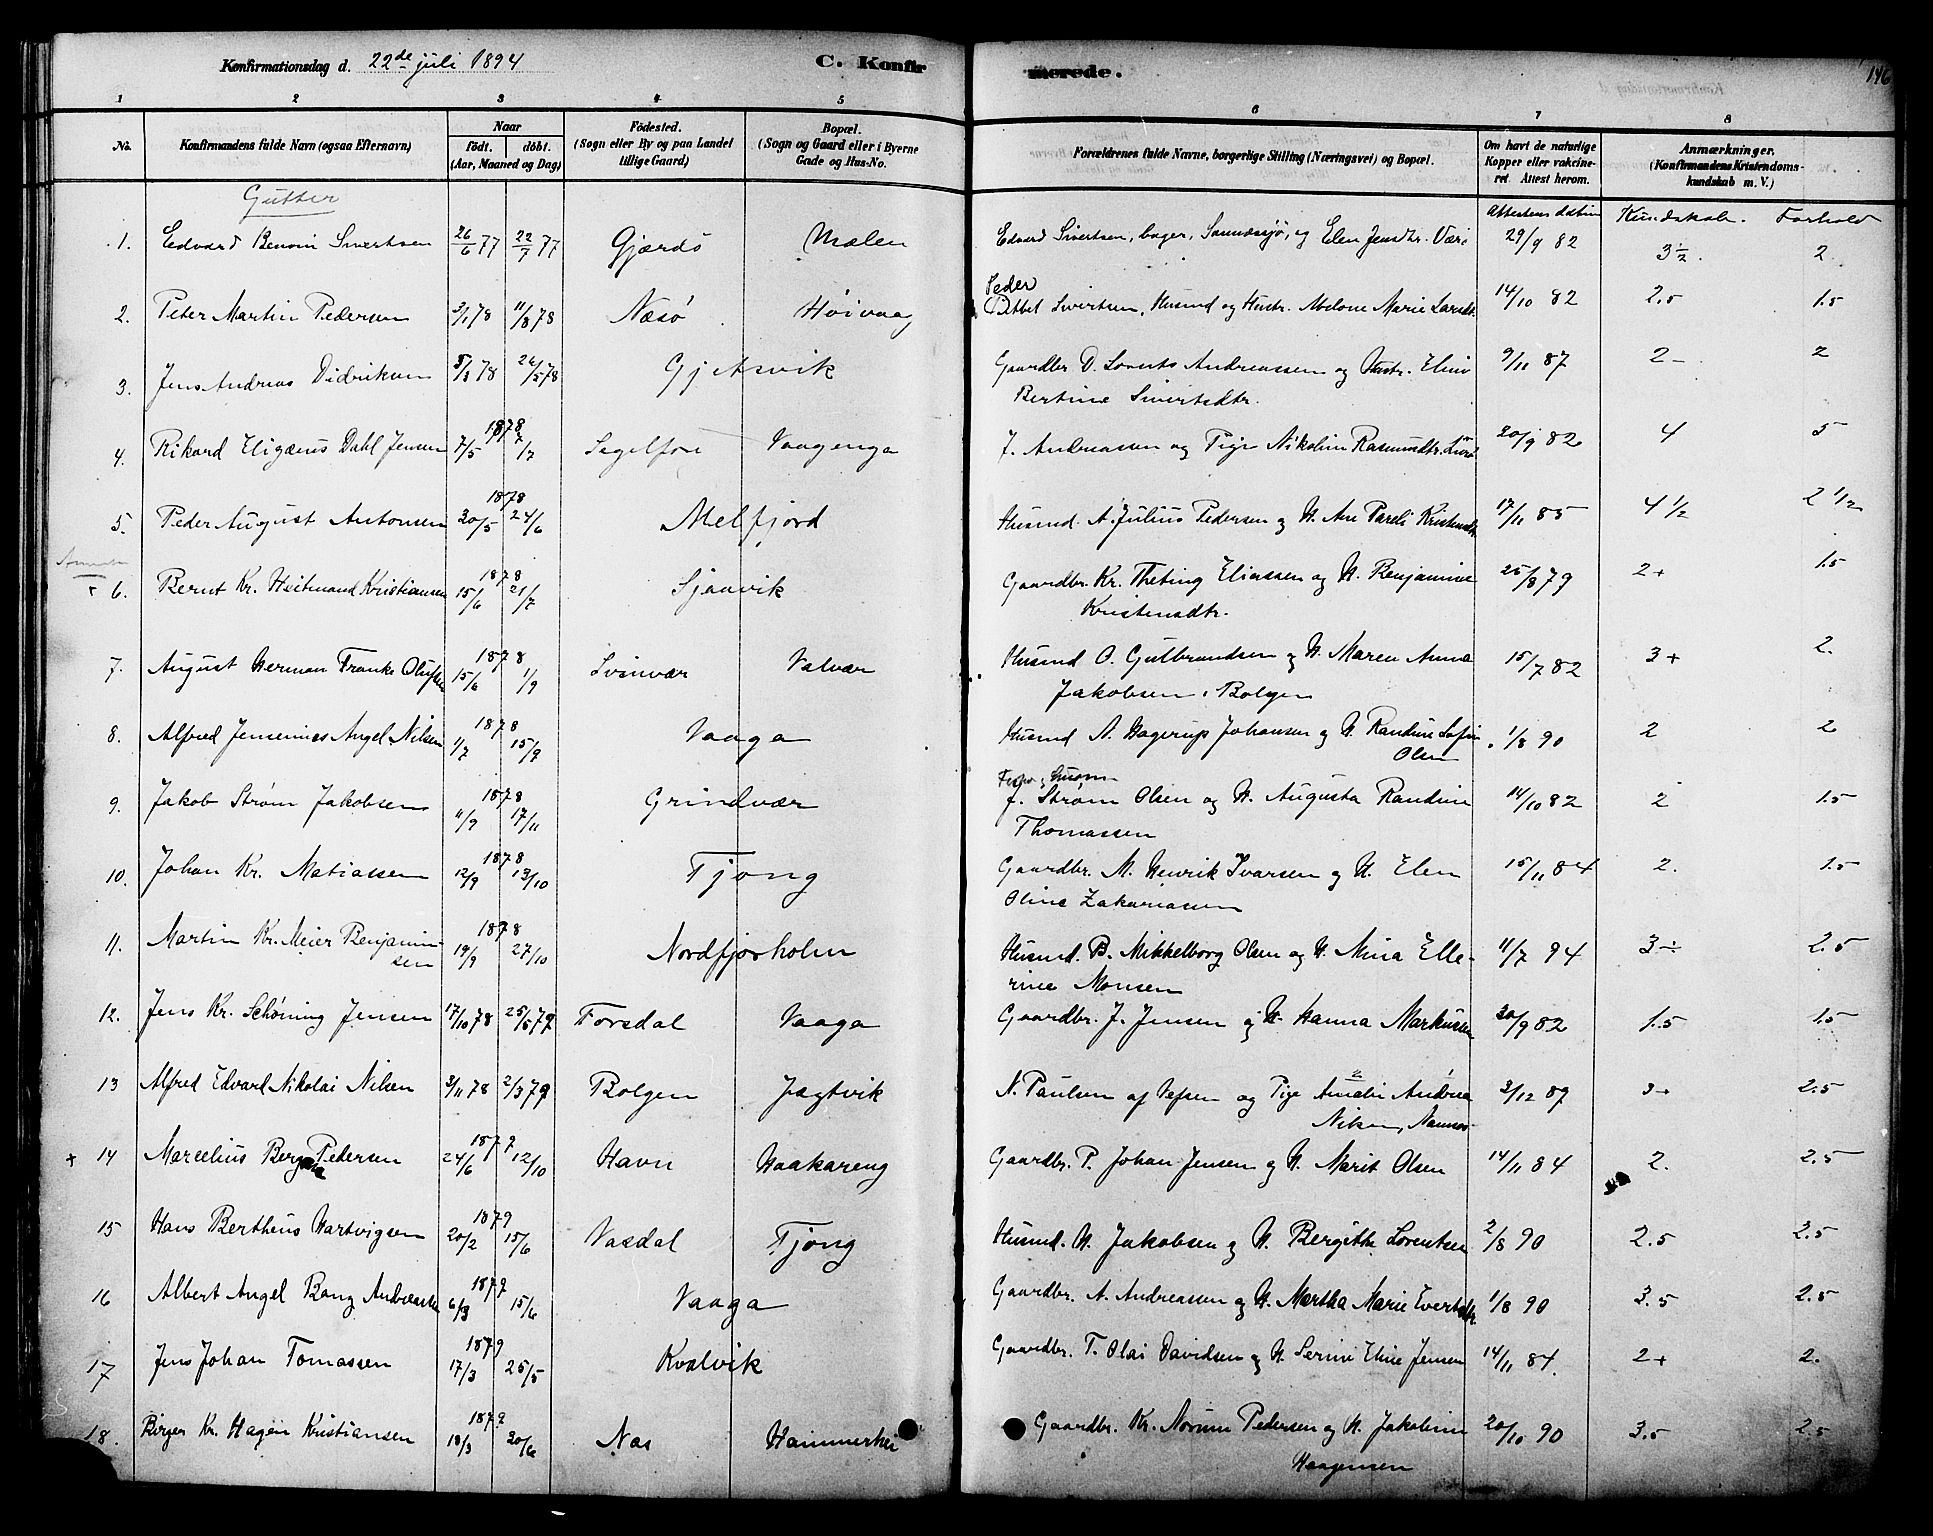 Konfirmationsdag d. 22de juli 1894 C. Konfirmerede. 146
1 2 3 4 5 6 7 8
No. Konfirmandens fulde Navn (ogsaa Efternavn) Naar født. døbt. (Aar, Maaned og Dag) Fødested. (Sogn eller By og paa Landet tillige Gaard) Bopæl. (Sogn og Gaard eller i Byerne Gade og Hus-No. Forældrenes fulde Navne, borgerlige Stilling (Næringsvei) og Bopæl. Om havt de naturlige Kopper eller vakcineret. Attest herom. Anmærkninger. (Konfirmandens Kristendomskundskab m. V.)
Gutter Attestens datum Kundskab. Forhold
1. Edvard Benoni Sivertsen 26/6 77 22/7 77 Gjærdö Mælen Edvard Sivertsen, bager, Sannessjø, og Elen Jensdtr. 29/9 82 3½. 2
2. Peter Martin Pedersen 3/1 78 11/8 78 Næsø Høivaag Peder Pettet Sivertsen, Husmd og Hustr. Abelone Marie Larsdt. 14/10 82 2.5 1.5
3. Jens Andreas Didriksen 5/3 78 26/5 78 Gjersvik Gaardbr D. Lorents Andreassen og Hustr. Eline 9/11 87 2- 2
Bertine Sivertsdtr.
4. Rikard Eligæus Dahl Jensen 1878 7/5 7/7 Segelfore Vaagenga J. Andreassen og Pige Nikoline Rasmusdtr. Lurø 20/9 82 4 5
5. Peder August Antonsen 1878 20/5 24/6 Melfjord Husmd. A. Julius Pedersen og H. Ane Pareli Kristensdtr 17/11 85 4 1/2 2 1/2
6. Bernt Kr. Heitmand Kristiansen 1878 15/6 21/7 Sjaavik Gaardbr. Kr. Theting Eliassen og H. Benjamine 25/8 79 2+ 1.5
Kristensdtr.
7. August Herman Franke Olufsen 1878 15/6 1/9 Svinvær Valvær Husmd O. Gulbrandsen og H. Maren Anna 15/7 82 3+ 2.
Jakobsen, Bolgen
8. Alfred Jensenius Angel Nilsen 1878 1/7 15/9 Vaaga Husmd A. Hagerup Johansen og H. Randine Sofie 1/8 90 2 2
Olsen
9. Jakob Strøm Jakobsen 1878 11/9 17/11 Grindvær J. Strøm Olsen og H. Augusta Randine 14/10 82 2 1.5
Thomassen
10. Johan Kr. Matiassen 1878 12/9 13/10 Tjong Gaardbr. M. Henrik Ivarsen og H. Elen 15/11 84 2. 1.5
Oline Zakariassen
11. Martin Kr. Meier Benjaminsen 1878 19/9 27/10 Nordfjorholm Husmd. B. Mikkelborg Olsen og H. Mina Elle- 11/7 94 3÷ 2.5
rine Monsen
12. Jens Kr. Schöning Jensen 17/10 78 25/5 79 Forsdal Vaaga Gaardbr. J. Jensen og H. Hanna Markussen 20/9 82 1.5 1.5
13 Alfred Edvard Nikolai Nilsen 3/11 78 2/3 79 Bolgen Jægtvik N. Paulsen af Vefsen og Pige Amalie Andrea 3/12 87 3+ 2.5
14 Marcelius Berg Pedersen 1879 24/6 12/10 Havn Haakareng Gaardbr. P. Johan Jensen og H. Marit Olsen 14/11 84 2. 2.5
15 Hans Bertheus Hartvigsen 1879 20/2 15/6 Vasdal Tjong Husmd. H. Jakobsen og H. Bergitte Lorentsen 2/8 90 2.5 2.5
16 Albert Angel Bang Andreassen 1879 6/3 15/6 Vaaga Gaardbr. A. Andreassen og H. Martha Marie Evertsdtr. 1/8 90 3.5 2.5
17 Jens Johan Tomassen 1879 17/3 25/5 Kvalvik Gaardbr. T. Olai Davidsen og H. Serine Eline Jensen 14/11 84. 2+ 2.
18. Birger Kr. Hagen Kristiansen 1879 18/3 20/6 Nas Hammerhei Gaardbr. Kr. Norum Pedersen og H. Jakobine 20/10 90 3.5 2.5
Haagensen